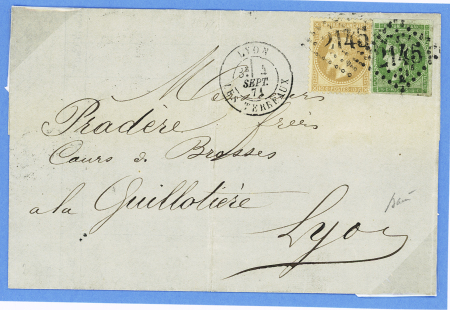 2145 2145
LYON
3E 4
SEPT.
71
LES TERREAUX
Messieurs
Pradère frères
Cours de Brosses
a la Guillotière
Lyon